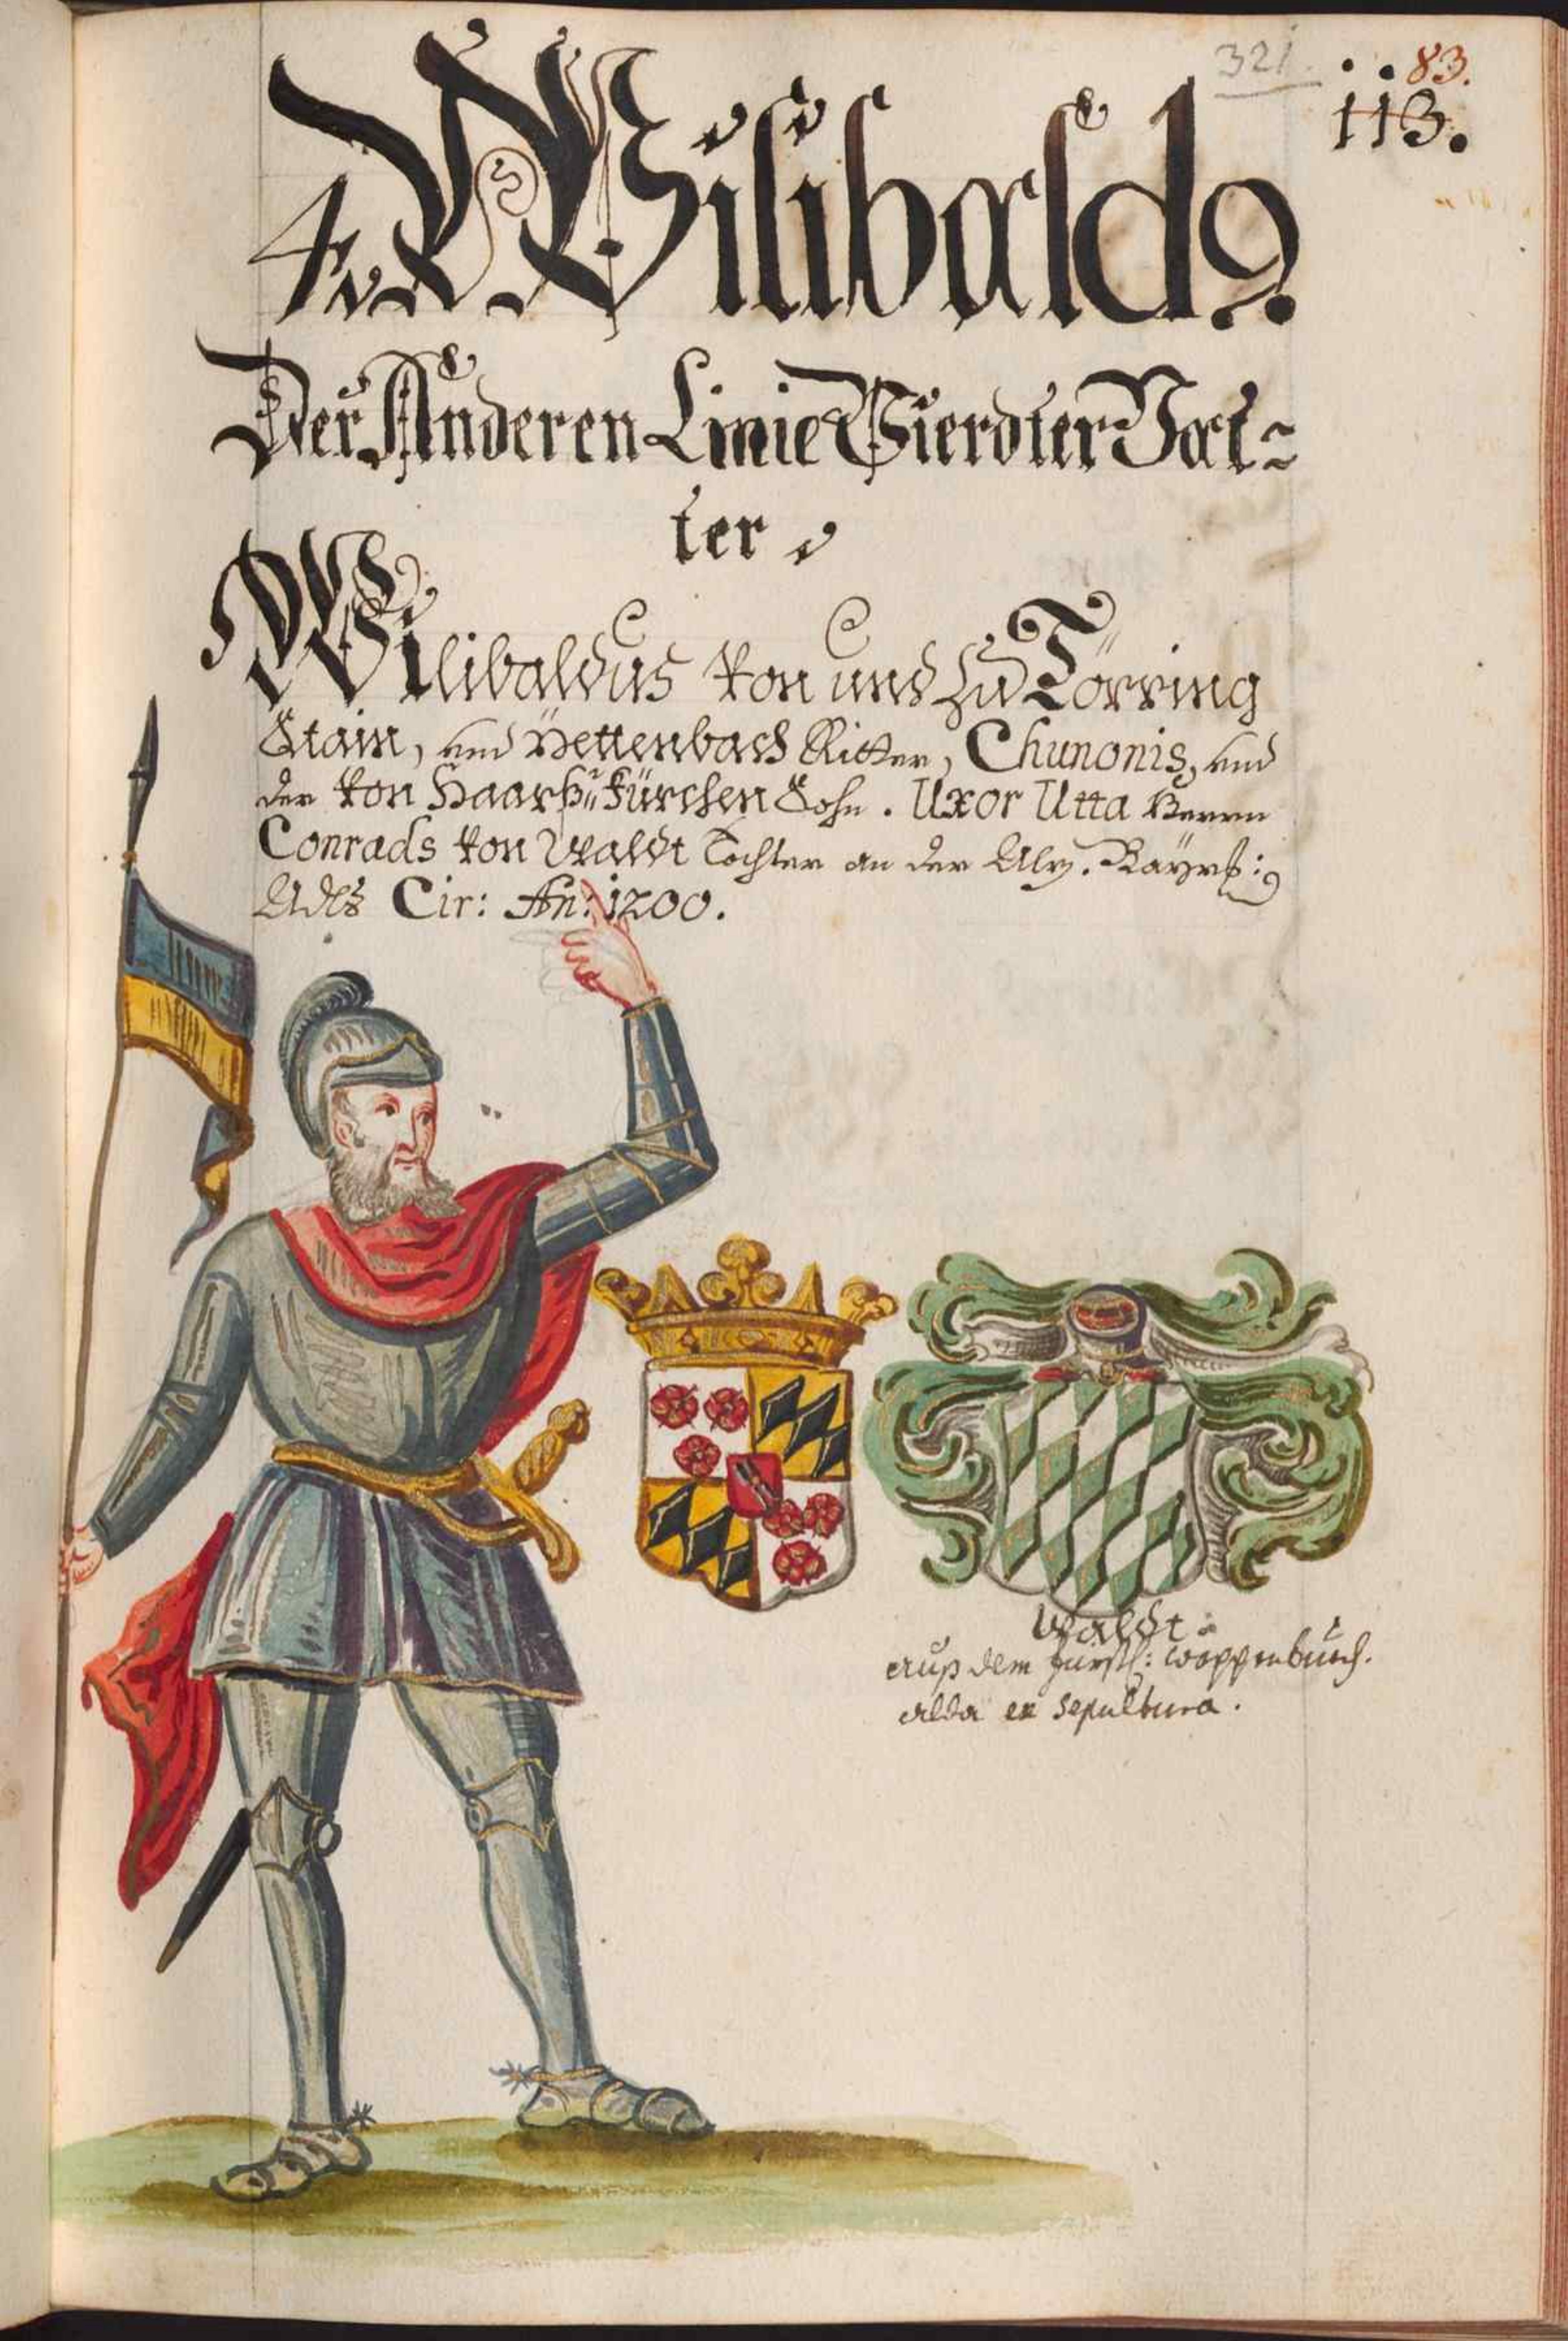 321. 83.
113.
4. Wilibald9
Der Anderen Linie Vierdter Vat=
ter
Wilibaldus Von und zu Törring
Stain, und Pettenbach Ritter, Chunonis, und
der Von Haarkürchen Sohn. Uxor Utta Herrn
Conrads Von Waldt Tochter an der Alz. Bayrß:
Adls Cir: An: 1200.
Waldt
auß dem fürstl: wappenbuch.
alda ex sepultura.